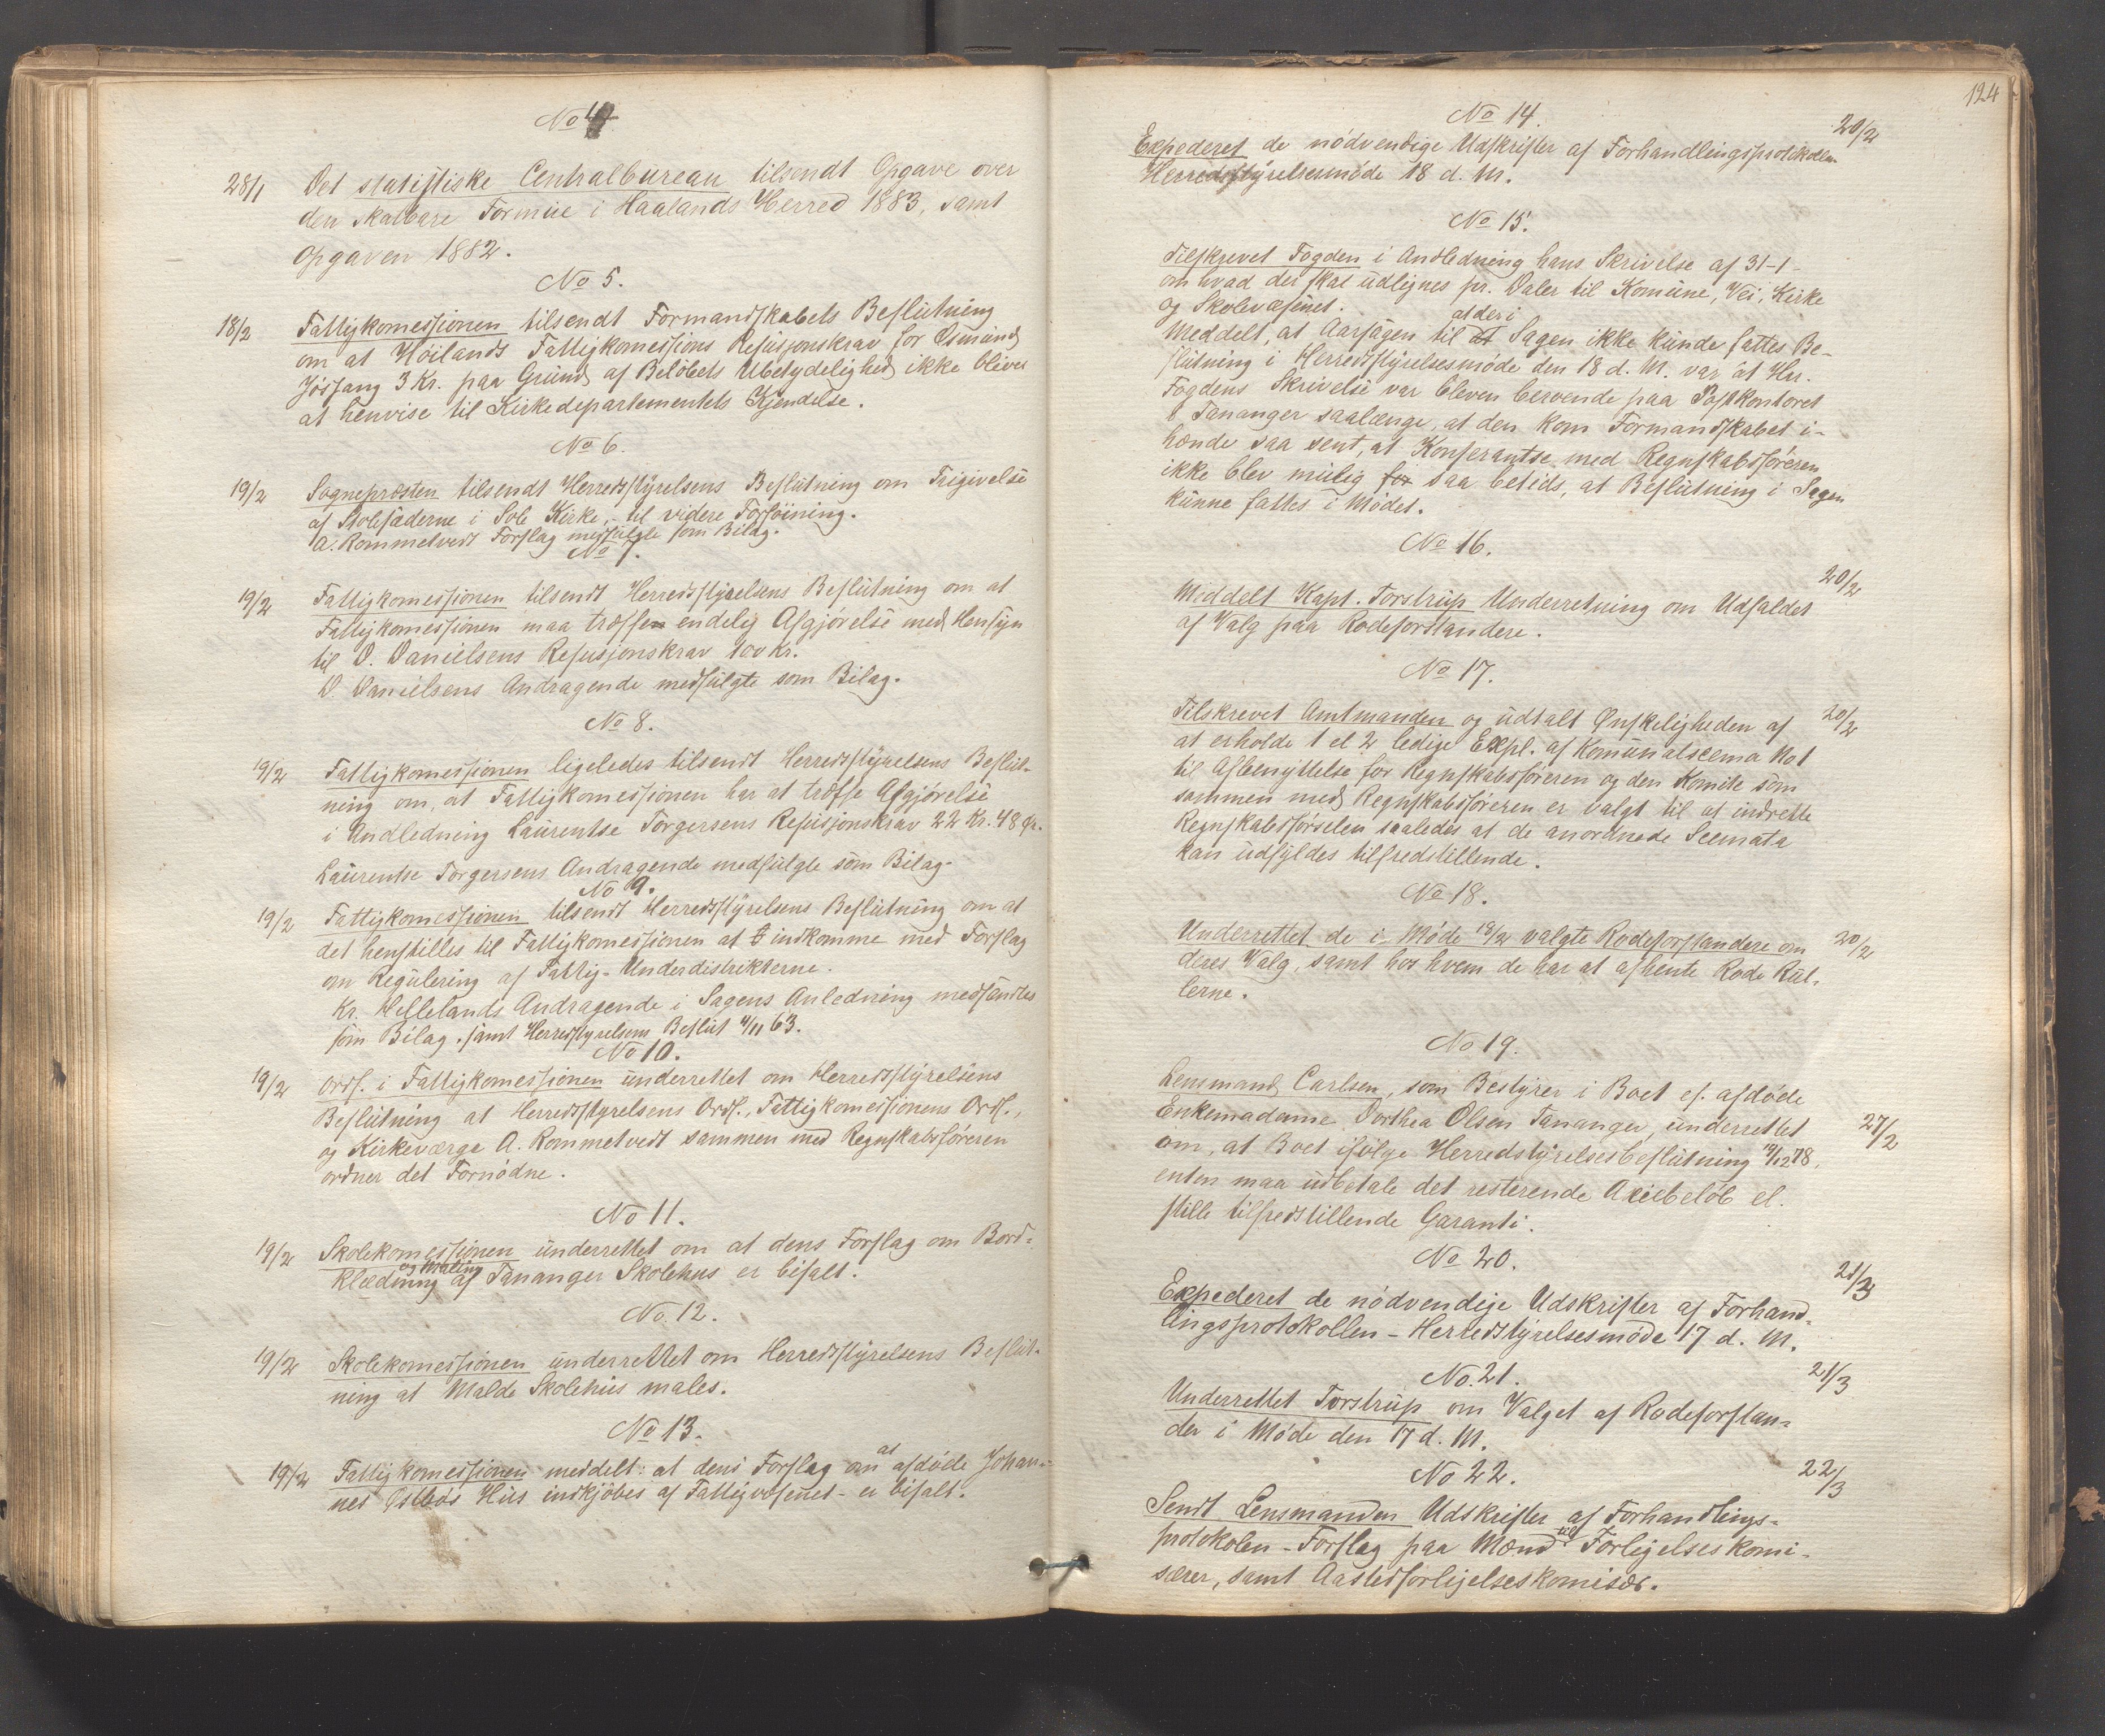 No 4
28/1 Det statistiske Centralbureau tilsendt Opgave over
den skatbare Formue i Haalands Herred 1883, samt
Opgaven 1882.
No 5.
18/2 Fattigkomessionen tilsendt Formandskabets Beslutning
om at Höilands Fattigkomessions Refusjonskrav for Osmund
Jössang 3 Kr. paa Grund af Belöbets Ubetydelighed ikke bliver
at henvise til Kirkedepartementets Kjendelse.
No 6.
19/2 Sognepræsten tilsendt Herredsstyrelsens Beslutning om Frigivelse
af Stolesæderne i Sole Kirke, til videre Forföining.
A. Rommetvedt Forslag medfulgte som Bilag.
No 7.
19/2 Fattigkomessionen tilsendt Herredsstyrelsens Beslutning om at
Fattigkomessionen maa træffen endelig Afgjörelse med Hensyn
til D. Danielsens Refusjonskrav 100 Kr.
D. Danielsens Andragende medfulgte som Bilag.
No 8.
19/2 Fattigkomessionen ligeledes tilsendt Herredsstyrelsens Beslut-
ning om, at Fattigkomessionen har at træffe Afgjörelse
i Andledning Laurentse Torgersens Refusjonskrav 22 Kr. 48 Ör.
Laurentse Torgersens Andragende medfulgte som Bilag.
No 9.
19/2 Fattigkomessionen tilsendt Herredsstyrelsens Beslutning om at
det henstilles til Fattigkomessionen at indkomme med Forslag
om Regulering af Fattig-Underdistrikterne.
Kr. Hellelands Andragende i Sagens Anledning medsendtes
som Bilag. samt Herredsstyrelsens Beslut 4/11 63.
No 10.
19/2 Ords. i Fattigkomessionen underrettet om Herredsstyrelsens
Beslutning at Herredsstyrelsens Ords., Fattigkomessionens Ords.,
og Kirkeværge A. Rommetvedt sammen med Regnskabsföreren
ordner det Fornödne.
No 11.
19/2 Skolekomessionen underrettet om at dens Forslag om Bord-
klædning og Maling af Tananger Skolehus er bifalt.
No. 12.
19/2 Skolekomessionen underrettet om Herredsstyrelsens Beslut-
ning at Malde Skolehus males.
No 13.
19/2 Fattigkomessionen meddelt: at dens Forslag om at afdöde Johan-
nes Östbös Hus indkjöbes af Fattigvæsenet - er bifalt.
124
No 14.
Expederet de nödvendige Udskrifter af Forhandlingsprotokollen 20/2
Herredsstyrelsesmöde 18 d. M.
No 15.
Tilskrevet Fogden i Andledning hans Skrivelse af 31-1-
om hvad der skal udlignes pr. Daler til Komune, Vei, Kirke
og Skolevæsenet.
Meddelt, at Aarsagen til at at der i Sagen ikke kunde fattes Be-
slutning i Herredsstyrelsesmöde den 18 d. M. var at Hr.
Fogdens Skrivelse var bleven beroende paa Postkontoret
i Tananger saalænge, at den kom Formandskabet i-
hænde saa sent, at Konferantse med Regnskabsföreren
ikke blev mulig för saa betids, at Beslutning i Sagen
kunne fattes i Mödet.
No 16.
Middelt Kapt. Torstrup Underretning om Udfaldet 20/2
af Valg paa Rodeforstandere.
No 17.
Tilskrevet Amtmanden og udtalt Önskeligheden af 20/2
at erholde 1 el 2 ledige Expl. af Komunalscema No 1
til Afbenyttelse for Regnskabsföreren og den Komite som
sammen med Regnskabsföreren er valgt til at indrette
Regnskabsförselen saaledes at de anordnede Scemata
kan udfyldes tilfredstillende.
No 18.
Underrettet de i Möde 18/2 valgte Rodeforstandere om 20/2
deres Valg, samt hos hvem de har at afhente Rode Rul-
lerne.
No 19.
Lensmand Carlsen, som Bestyrer i Boet ef. afdöde
Enkemadame Dorthea Olsen Tananger, underrettet 27/2
om, at Boet ifölge Herredstyrelsesbeslutning 12 78,
enten maa udbetale det resterende Axiebelöb el.
stille tilfredstillende Garanti.
No 20.
Expederet de nödvendige Udskrifter af Forhand- 21/3
lingsprotokollen - Herredstyrelsesmöde 17 d. M.
No. 21.
Underrettet Torstrup om Valget af Rodeforstan- 21/3
der i Möde den 17 d. M.
No 22.
Sendt Lensmanden Udskrifter af Forhandlings- 22/3
protokolen - Forslag paa Mænd til Forligelseskomi-
særer, samt Aastedsforligelseskomisær.